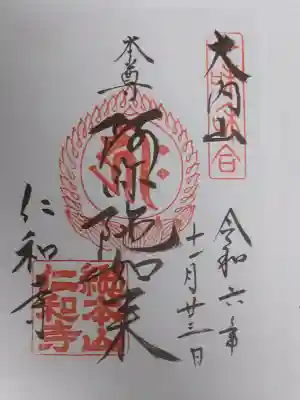 大内山
本尊
阿弥陀如来
仁和寺
令和六年
十一月廿三日
總本山
仁和寺